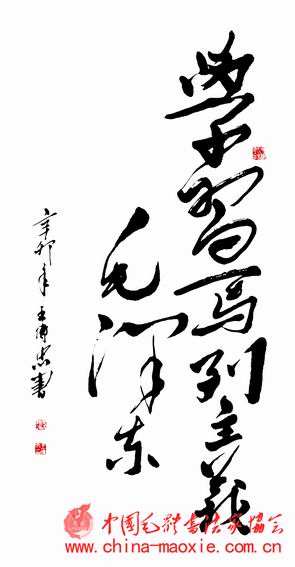 學習馬列主義
毛澤东
辛卯年 王傳忠書
中国毛体书法家协会
www.china-maoxie.com.cn